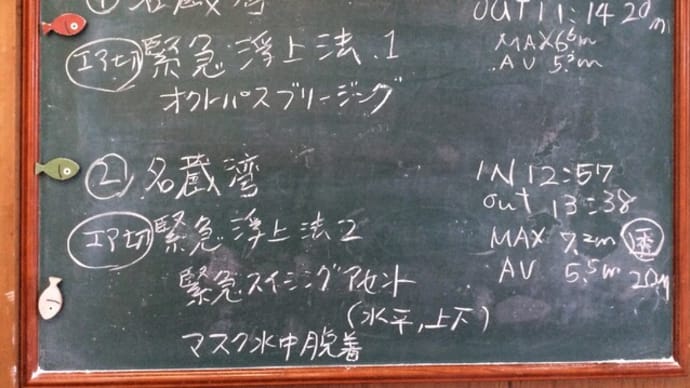 ① 名蔵湾
OUT 11:14 20m
MAX 6.6m
AV 5.2m
エア切 緊急浮上法.1
オクトパスブリージング
② 名蔵湾
IN 12:57
out 13:38
エア切 緊急浮上法2
MAX 7.2m 透
AV 5.5m 20m
緊急スイミングアセント
(水平,上下)
マスク水中脱着